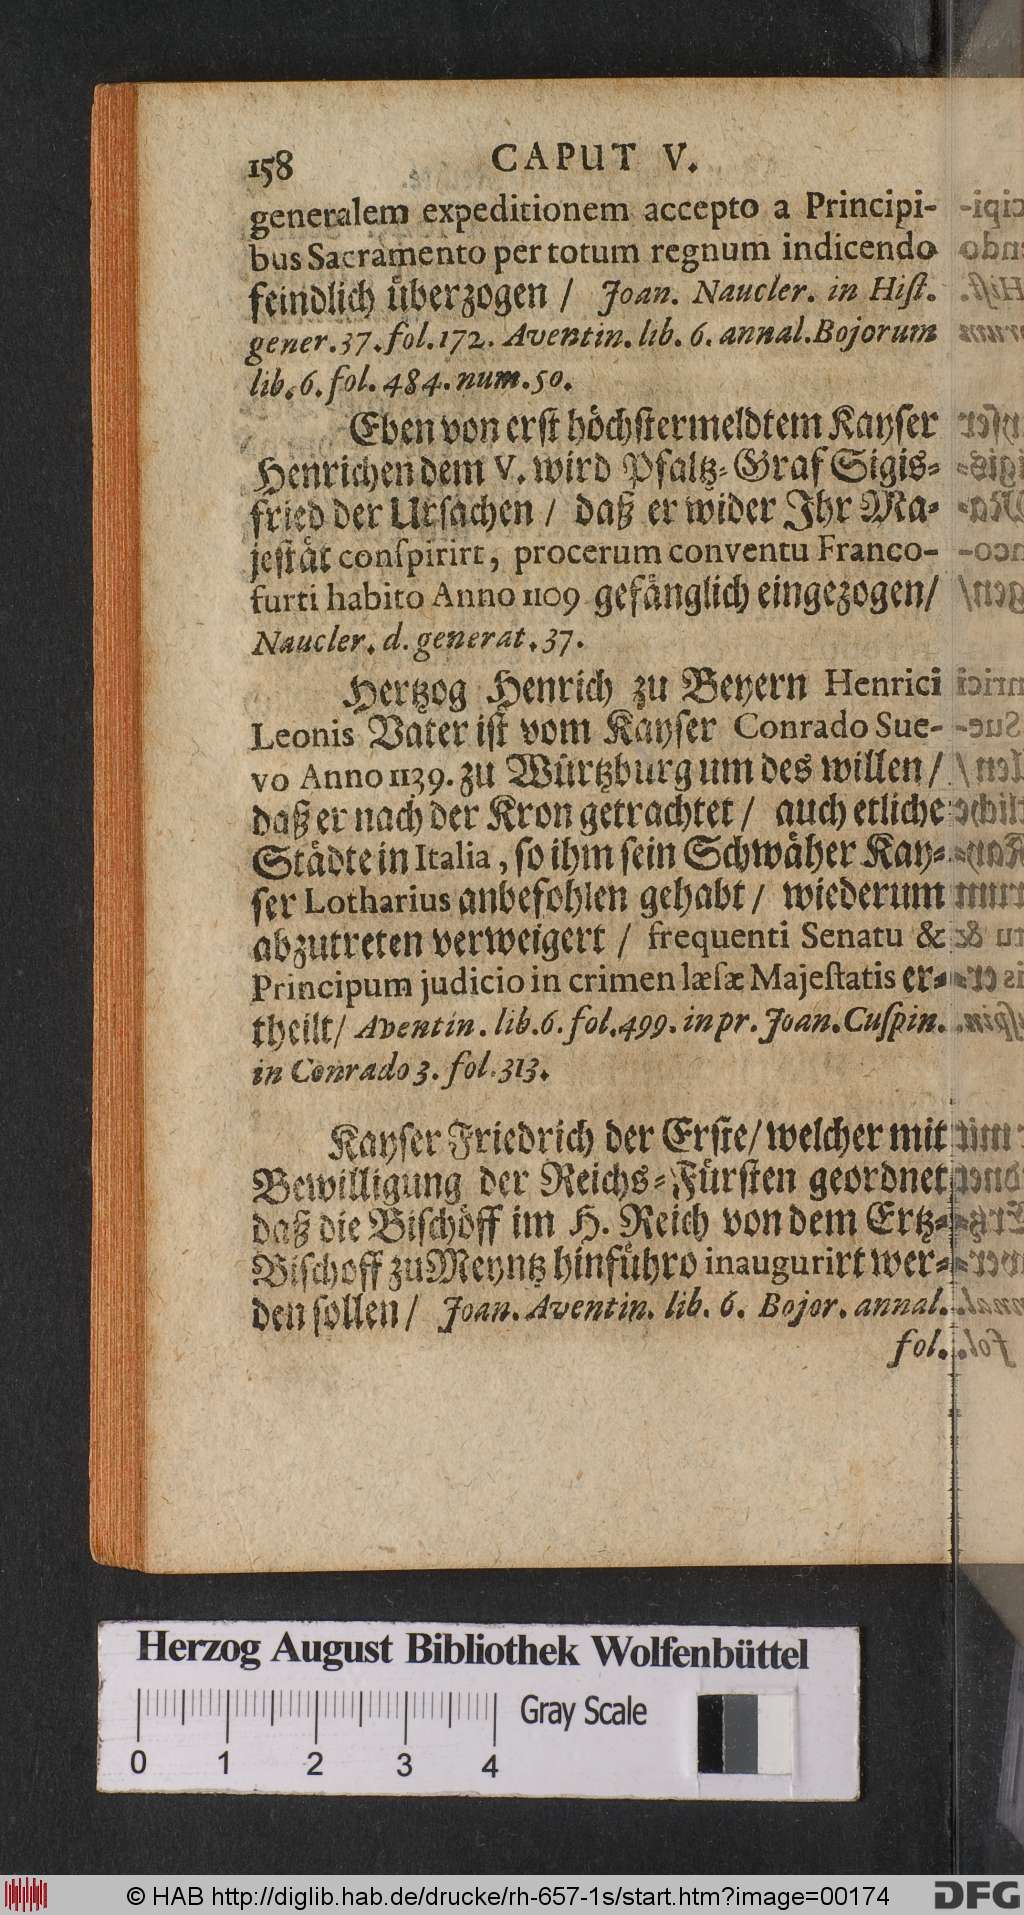 158 CAPUT V.
generalem expeditionem accepto a Principi-
bus Sacramento per totum regnum indicendo
feindlich überzogen / Joan. Naucler. in Hiſt.
gener. 37. fol. 172. Aventin. lib. 6. annal. Bojorum
lib. 6. fol. 484. num. 50.
Eben von erſt höchſtermeldtem Kayſer
Henrichen dem V. wird Pfaltz-Graf Sigis-
fried der Urſachen / daß er wider Ihr Ma-
jeſtät conſpirirt, procerum conventu Franco-
furti habito Anno 1109 gefänglich eingezogen /
Naucler. d. generat. 37.
Hertzog Henrich zu Beyern Henrici
Leonis Vater iſt vom Kayſer Conrado Sue-
vo Anno 1139. zu Würtzburg um des willen /
daß er nach der Kron getrachtet / auch etliche
Städte in Italia, ſo ihm ſein Schwäher Kay-
ſer Lotharius anbefohlen gehabt / wiederum
abzutreten verweigert / frequenti Senatu &
Principum judicio in crimen læſæ Majeſtatis er-
theilt / Aventin. lib. 6. fol. 499. in pr. Joan. Cuſpin.
in Conrado 3. fol. 313.
Kayſer Friedrich der Erſte / welcher mit
Bewilligung der Reichs-Fürſten geordnet
daß die Biſchöff im H. Reich von dem Ertz-
Biſchoff zu Meyntz hinführo inaugurirt wer-
den ſollen / Joan. Aventin. lib. 6. Bojor. annal.
fol.
Herzog August Bibliothek Wolfenbüttel
Gray Scale
0 1 2 3 4
© HAB http://diglib.hab.de/drucke/rh-657-1s/start.htm?image=00174
DFG